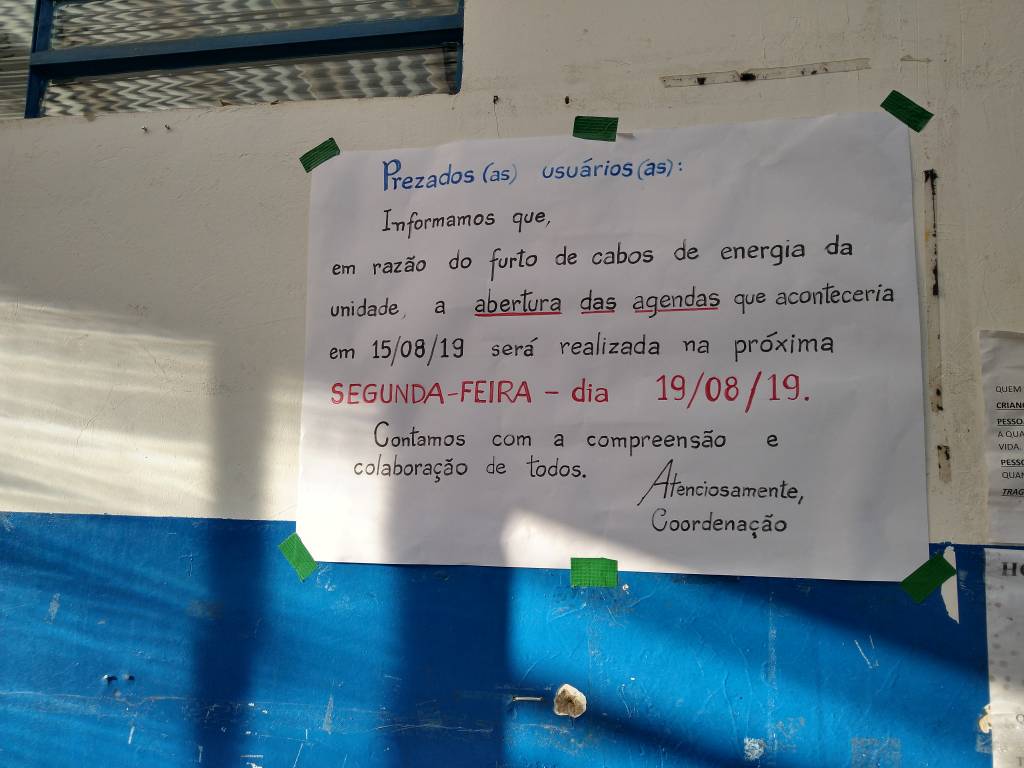 Prezados (as) usuários (as):
Informamos que,
em razão do furto de cabos de energia da
unidade, a abertura das agendas que aconteceria
em 15/08/19 será realizada na próxima
SEGUNDA-FEIRA - dia 19/08/19.
Contamos com a compreensão e
colaboração de todos.
Atenciosamente,
Coordenação
QUEM
VIDA.